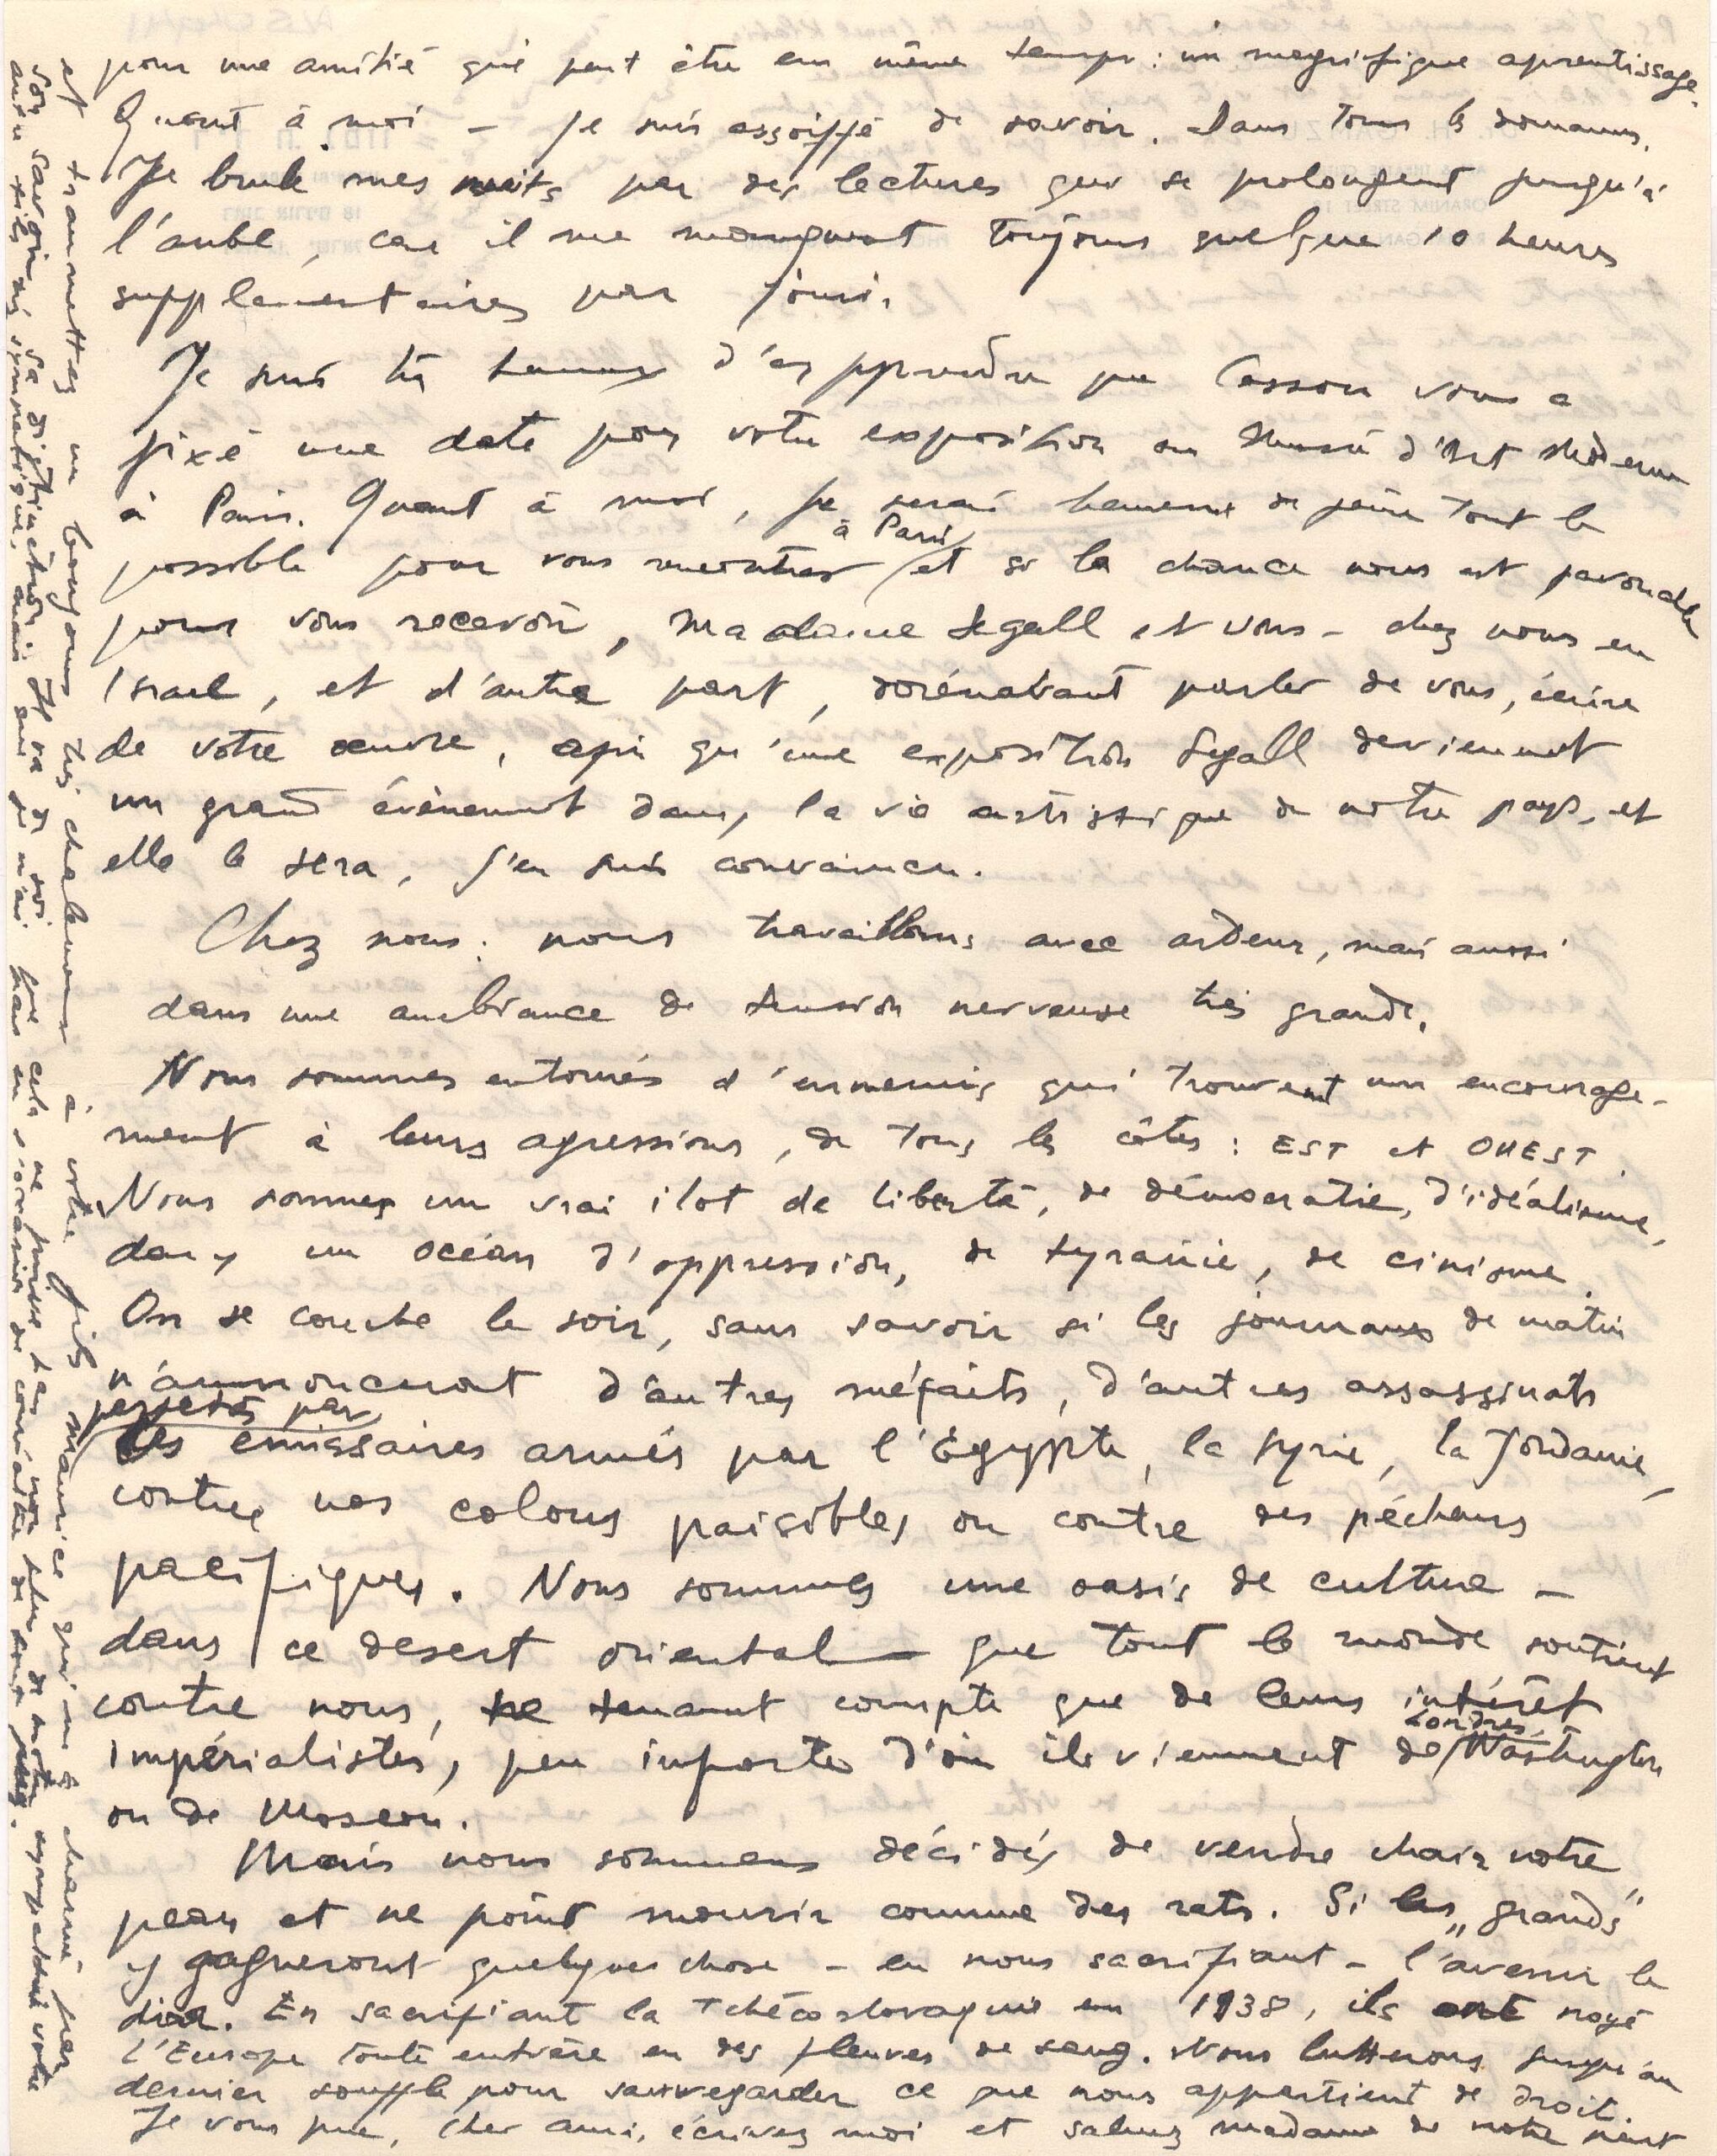 pour une amitié qui peut être en même temps : un magnifique aprentissage.
Quant à moi – je suis assoiffé de savoir. Dans tous les domaines.
Je brule mes nuits par des lectures qui se prolongent jusqu'à
l'aube, car il me manquent toujours quelque 10 heures
supplementaires par jour.
Je suis très heureux d'apprendre que Cassou vous a
fixé une date pour votre exposition au Musée d'Art Moderne
à Paris. Quant à moi, je serai heureux de faire tout le
à Paris
possible pour vous rencontrer et si la chance nous est favorable
pour vous recevoir, Madame Segall et vous – chez nous en
Israel, et d'autre part, dorénavant parler de vous, écrire
de votre œuvre, afin qu'une exposition Segall deviennent
un grand évènement dans la vie artistique de notre pays, et
elle le sera, j'en suis convaincu.
Chez nous : nous travaillons avec ardeur, mais aussi
dans une ambiance de tension nerveuse très grande.
Nous sommes entourés d'ennemis qui trouvent un encourage-
ment à leurs agressions, de tous les côtés : EST et OUEST.
Nous sommes un vrai ilot de liberté, de démocratie, d'idéalisme,
dans un océan d'oppression, de tyranie, de cinisme.
On se couche le soir, sans savoir si les journaux de matin
n'annonceront d'autres méfaits, d'autres assassinats
perpetrés par
les émissaires armés par l'Egypte, la Syrie, la Jordanie,
contre nos colons paisibles ou contre des pécheurs
pacifiques. Nous sommes une oasis de culture –
dans ce desert oriental – que tout le monde soutient
contre nous, ne tenant compte que de leurs intérêt
Londres,
impérialistes, peu importe d'où ils viennent de Washington
ou de Moscou.
Mais nous sommes décidés de vendre chair notre
peau et ne point mourir comme des rats. Si les „grands"
y gagneront quelque chose – en nous sacrifiant – l'avenir le
dira. En sacrifiant la Tchécoslovaquie en 1938, ils ont noyé
l'Europe toute entière en des fleuves de sang. Nous lutterons jusqu'au
dernier souffle pour sauvegarder ce que nous appartient de droit.
Je vous prie, cher ami, écrivez moi et saluez madame de notre part
et transmettez un bonjour très chaleureux à votre fils Maurice qui m'a charmé par
son savoir, sa distinction. Il va de soi que cela ne puisse non plus de votre
autre fils si sympatique, mais que je n'ai pas eu l'occasion de connaitre de plus près.